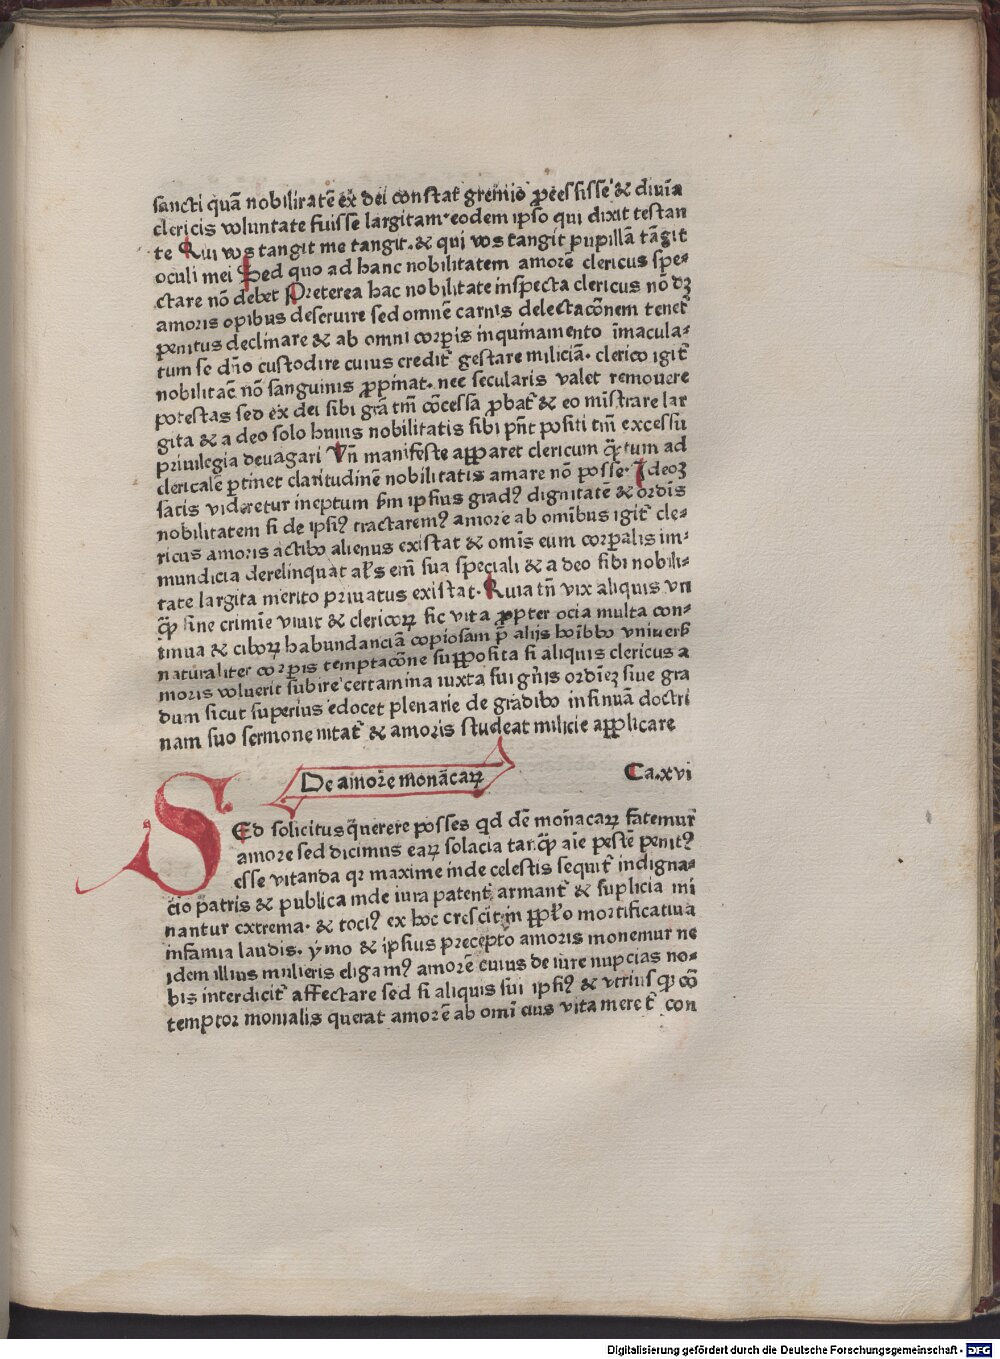 sancti quā nobilitatē ex dei constat̄ gremio ꝓcessisse & diuīa
clericis voluntate fuisse largitam·eodem ip̄o qui dixit testan
te Qui vos tangit me tangit·& qui vos tangit pupillā tāgit
oculi mei Sed quo ad hanc nobilitatem amorē clericus spe-
ctare nō debet Preterea hac nobilitate inspecta clericus nō dꝫ
amoris opibus deseruire sed omnē carnis delectacōnem tenet̄
penitus declinare & ab omni corꝑis inquinamento īmacula-
tum se dn̄o custodire cuius credit̄ gestare miliciā· clerico igit̄
nobilitatē nō sanguinis ꝓpinat· nec secularis valet remouere
potestas sed ex dei sibi grā tm̄ cōcessa ꝓbat̄ & eo mīstrare lar
gita & a deo solo huius nobilitatis sibi pn̄t positi tm̄ excessu
priuilegia deuagari Vn̄ manifeste apparet clericum ꝙ̄tum ad
clericale ꝑtinet claritudinē nobilitatis amare nō posse· Ideoꝫ
satis videretur ineptum sm̄ ipsius gradꝰ dignitatē & ordīs
nobilitatem si de ipsiꝰ tractaremꝰ amore ab omībus igit̄ cle-
ricus amoris actibꝰ alienus existat & omīs eum corꝑalis im-
mundicia derelinquat al̄s em̄ sua speciali & a deo sibi nobili-
tate largita merito priuatus existat· Quia tn̄ vix aliquis vn
ꝙ̄ sine crimīe viuit & clericoꝝ sic vita ꝓpter ocia multa con-
tinua & ciboꝝ habundanciā copiosam p̄ alijs hoībꝰ vniuers̄
naturaliter corꝑis temptacōne supposita si aliquis clericus a
moris voluerit subire certamina iuxta sui gn̄is ordīeꝫ siue gra
dum sicut superius edocet plenarie de gradibꝰ insinuā doctri
nam suo sermone nitat̄ & amoris studeat milicie applicare
De amore monācaꝝ Ca.xvi
SEd solicitus q̄rere posses qd̄ dē monācaꝝ fatemur̄
amore sed dicimus eaꝝ solacia tanꝙ̄ aīe pestē penitꝰ
esse vitanda qr maxime inde celestis sequit̄ indigna-
cio patris & publica inde iura patent̄ armant̄ & suplicia mi
nantur extrema· & tociꝰ ex hoc crescit in ppl̄o mortificatiua
infamia laudis· ymo & ipsius precepto amoris monemur ne
idem illius mulieris eligamꝰ amorē cuius de iure nupcias no-
bis interdicit̄ affectare sed si aliquis sui ipsiꝰ & vtriusꝙ̄ cō
temptor monialis querat amorē ab omī eius vita meret̄ con
Digitalisierung gefördert durch die Deutsche Forschungsgemeinschaft - DFG